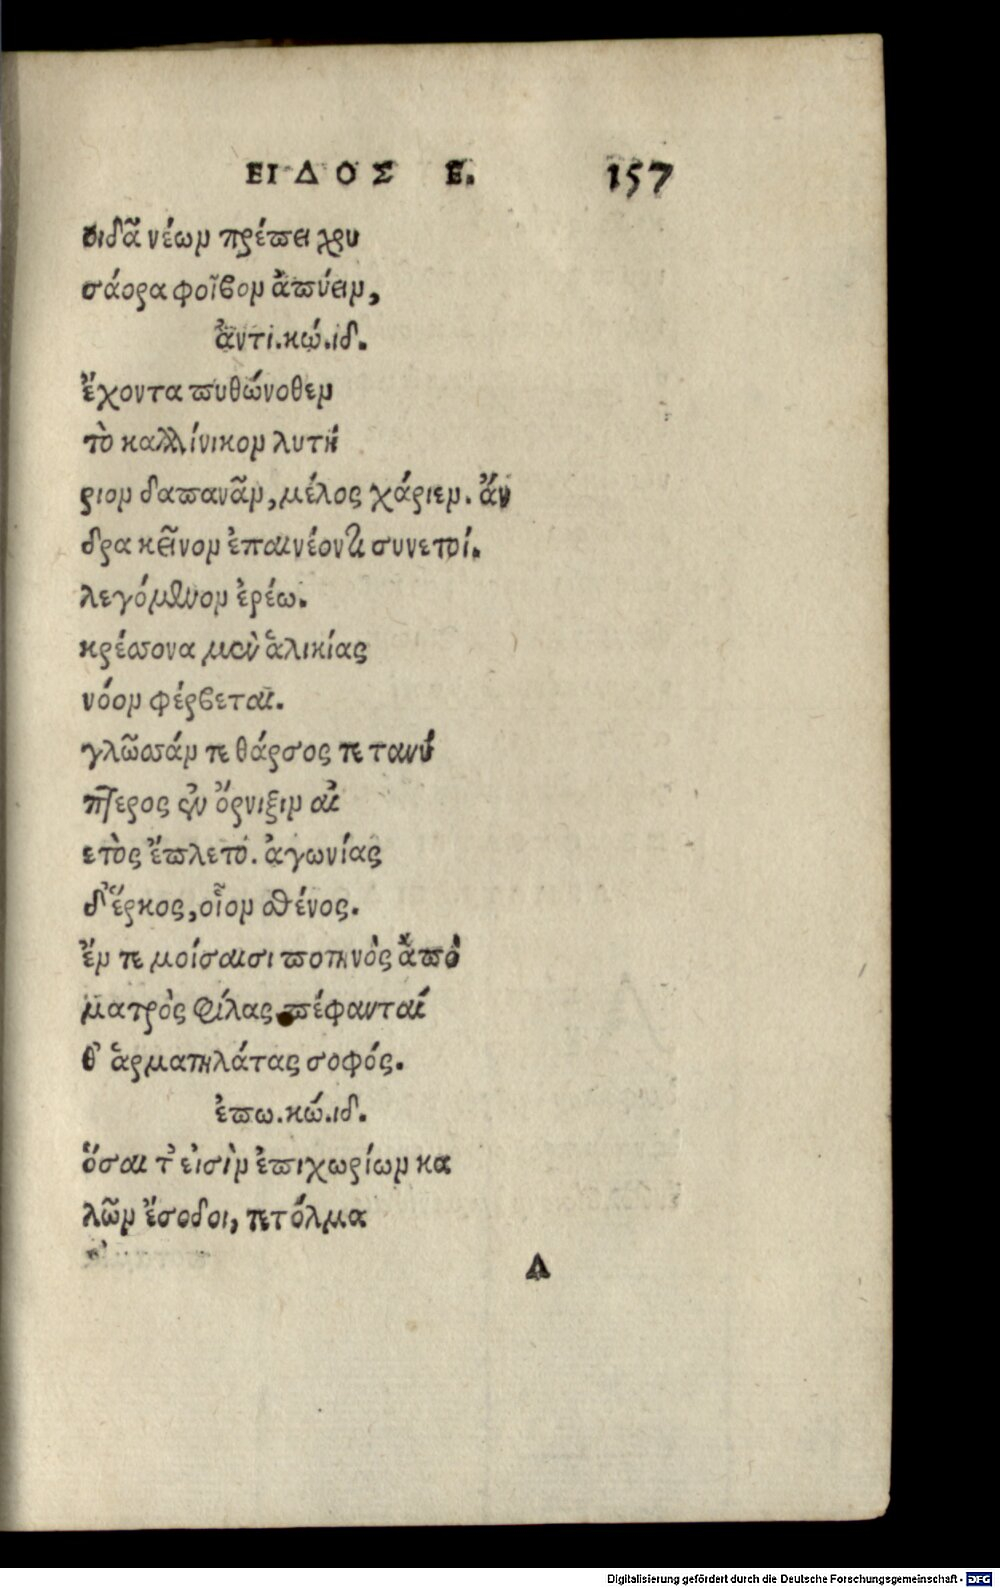 ΕΙΔΟΣ Ε. 157
οιδᾶ νέων πρέπει χρυ
σάορα φοῖβον ἀπύειν,
ἀντι.κώ.ιδ.
ἔχοντα πυθώνοθεν
τὸ καλλίνικον λυτή
ριον δαπανᾶν, μέλος χάριεν. ἄν
δρα κεῖνον ἐπαινέοντι συνετοί.
λεγόμενον ἐρέω.
κρέσσονα μὲν ἁλικίας
νόον φέρβεται.
γλῶσσάν τε θάρσος τε τανύ
πτερος ἐν ὄρνιξιν αἰ
ετὸς ἔπλετο. ἀγωνίας
δ' ἕρκος, οἷον σθένος.
ἔν τε μοίσαισι ποτηνὸς ἀπὸ
ματρὸς φίλας πέφανταί
θ' ἁρματηλάτας σοφός.
ἐπω.κώ.ιδ.
ὅσαι τ' εἰσὶν ἐπιχωρίων κα
λῶν ἔσοδοι, τετόλμα
Λ
Digitalisierung gefördert durch die Deutsche Forschungsgemeinschaft - DFG